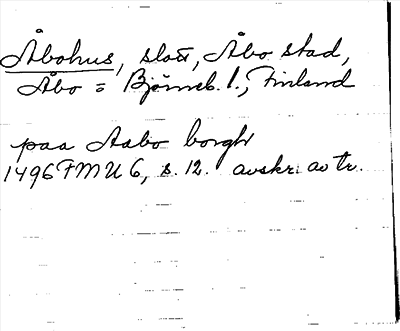 Åbohus, slott, Åbo stad,
Åbo = Björneb. l., Finland
paa Aabo borgh
1496 FMU 6, s. 12. avskr. av tr.